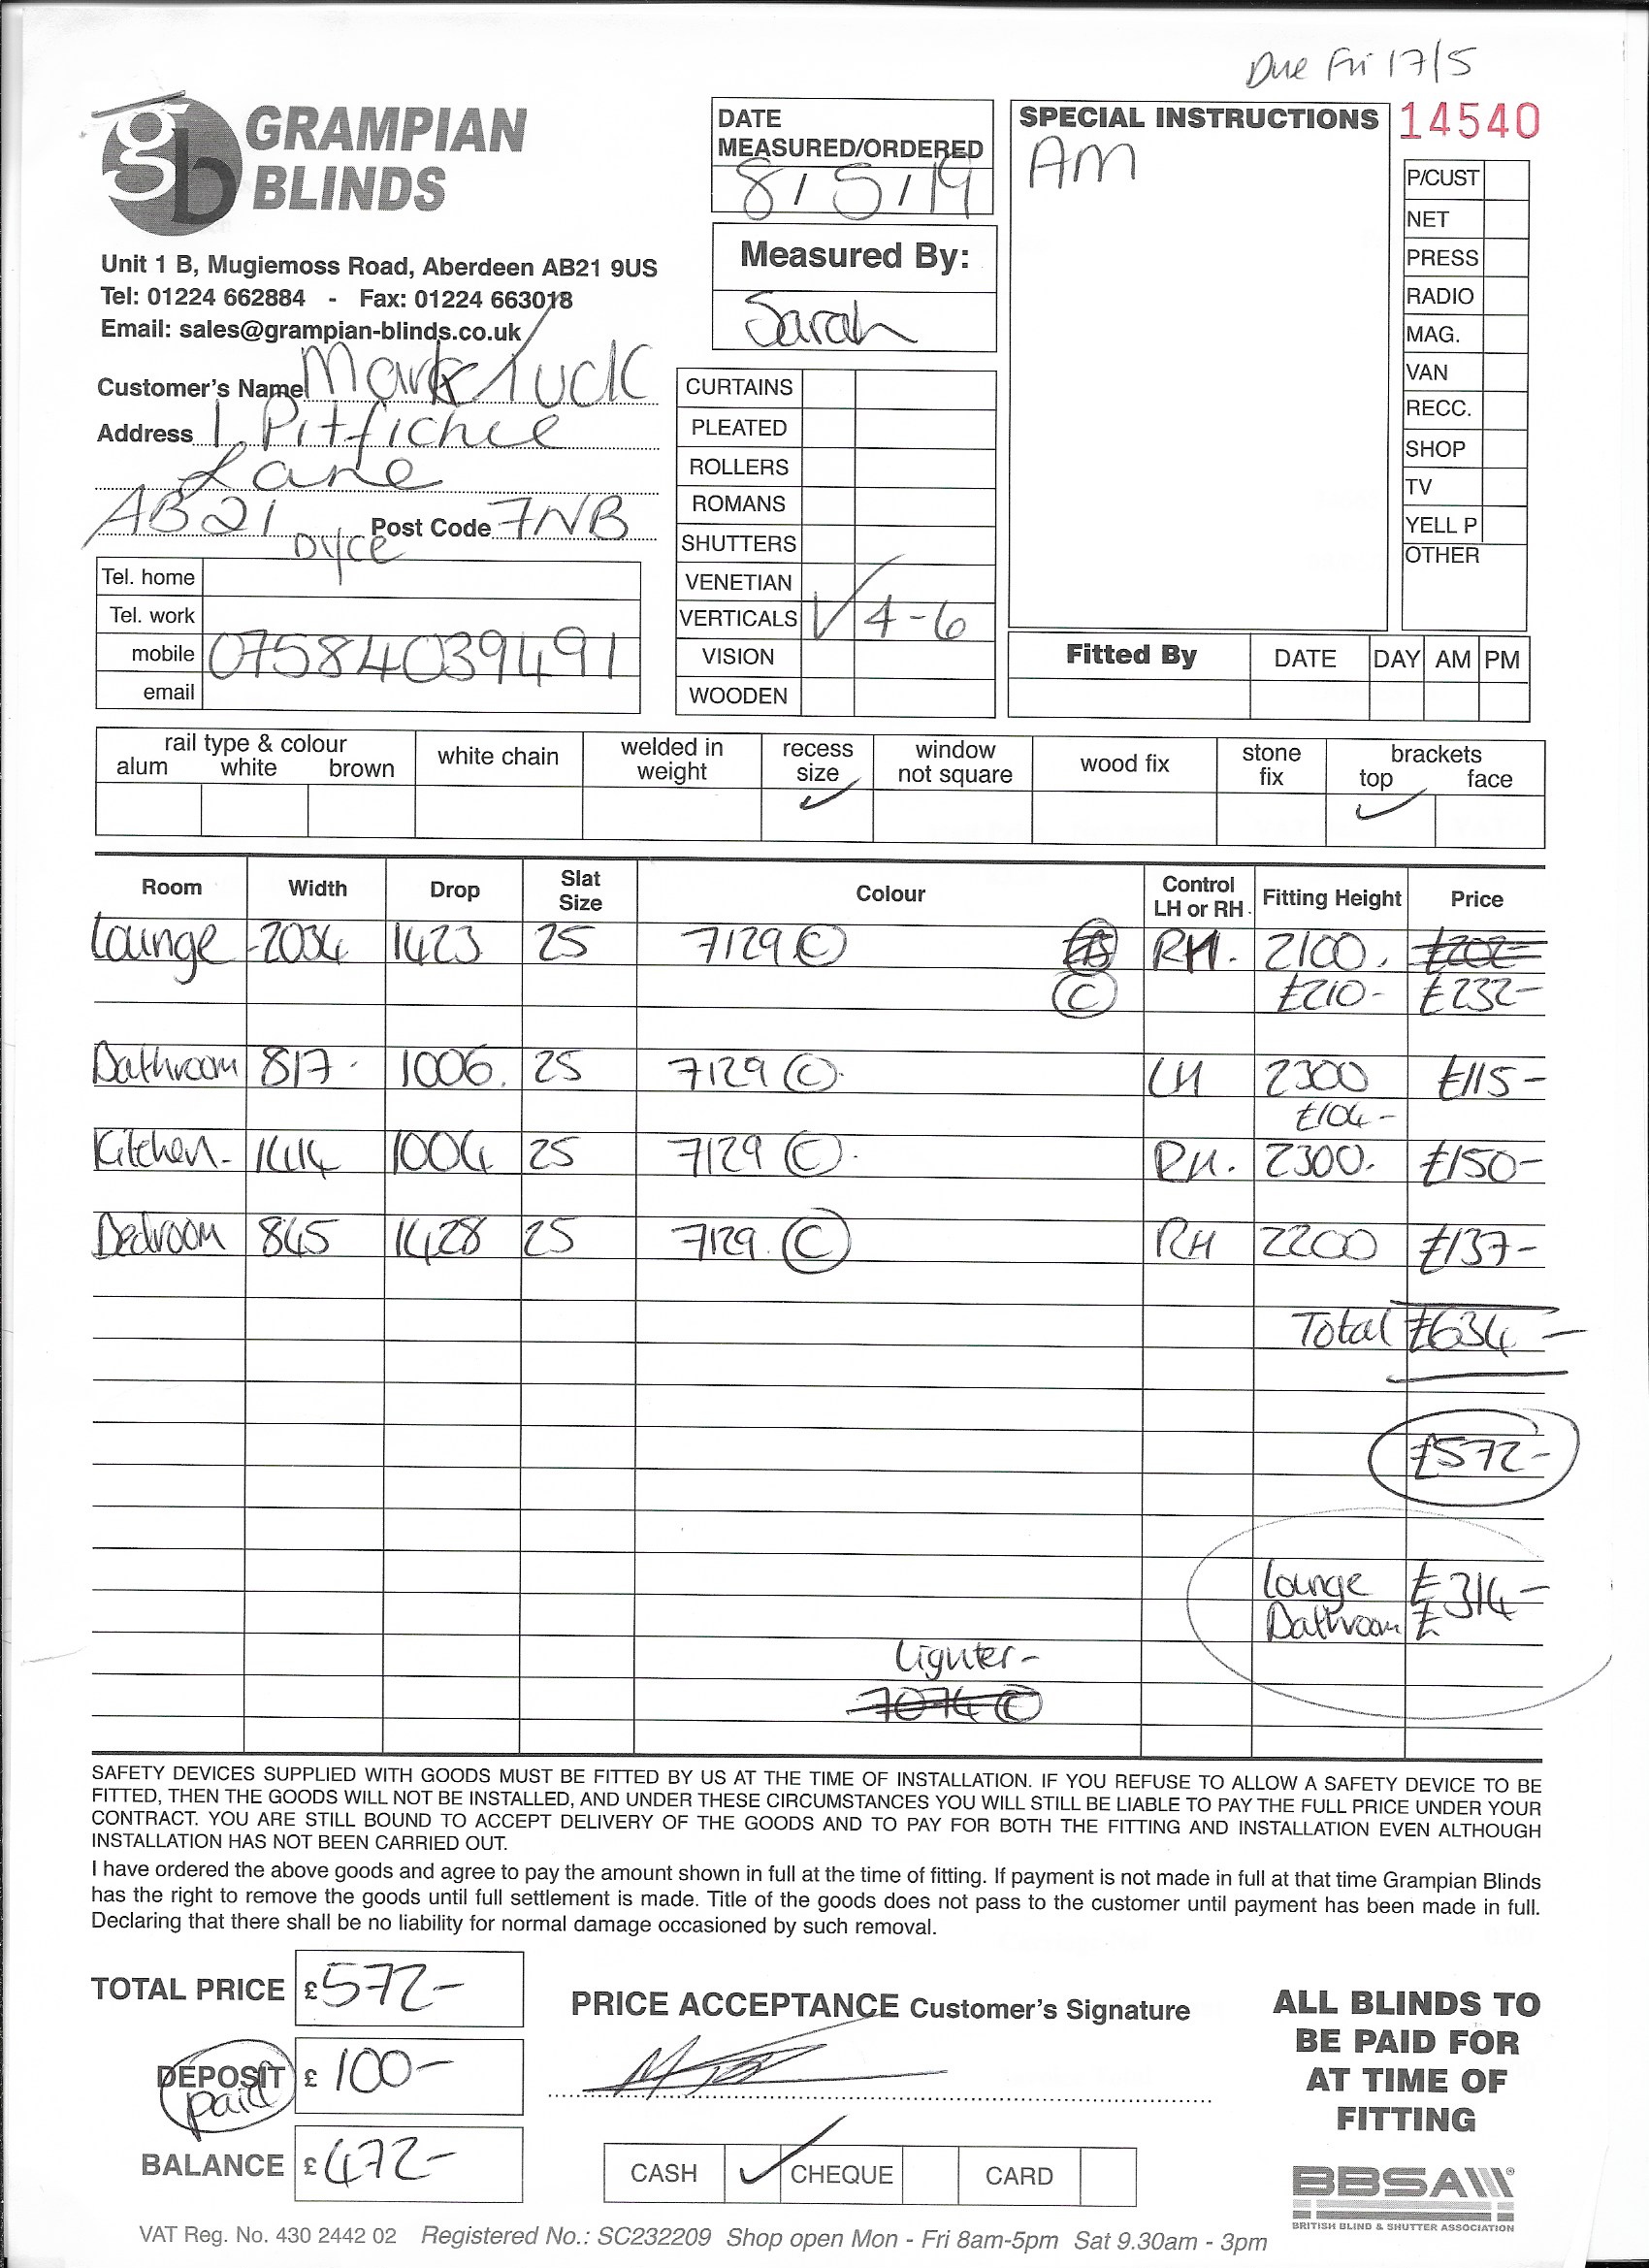 Due Fri 17/5
gb GRAMPIAN BLINDS
Unit 1 B, Mugiemoss Road, Aberdeen AB21 9US
Tel: 01224 662884 - Fax: 01224 663018
Email: sales@grampian-blinds.co.uk
Customer's Name Mark Tuck
Address 1, Pitfichie
Lane
AB21 Post Code 7NB
Dyce
Tel. home
Tel. work
mobile 07584039491
email
DATE
MEASURED/ORDERED
8/5/19
Measured By:
Sarah
CURTAINS
PLEATED
ROLLERS
ROMANS
SHUTTERS
VENETIAN
VERTICALS ✓ 4-6
VISION
WOODEN
SPECIAL INSTRUCTIONS
AM
14540
P/CUST
NET
PRESS
RADIO
MAG.
VAN
RECC.
SHOP
TV
YELL P
OTHER
Fitted By DATE DAY AM PM
rail type & colour white chain welded in weight recess size window not square wood fix stone fix brackets
alum white brown top face
✓ ✓
Room Width Drop Slat Size Colour Control LH or RH Fitting Height Price
Lounge 2034 1423 25 7129 C RH. 2100. £202-
C £210- £232-
Bathroom 817 1006. 25 7129 C LH 2300 £115-
£104-
Kitchen 1414 1004 25 7129 C RH. 2300. £150-
Bedroom 845 1428 25 7129 C RH 2200 £137-
Total £634-
£572-
Lounge £314-
Bathroom £
Lighter-
7074 C
SAFETY DEVICES SUPPLIED WITH GOODS MUST BE FITTED BY US AT THE TIME OF INSTALLATION. IF YOU REFUSE TO ALLOW A SAFETY DEVICE TO BE
FITTED, THEN THE GOODS WILL NOT BE INSTALLED, AND UNDER THESE CIRCUMSTANCES YOU WILL STILL BE LIABLE TO PAY THE FULL PRICE UNDER YOUR
CONTRACT. YOU ARE STILL BOUND TO ACCEPT DELIVERY OF THE GOODS AND TO PAY FOR BOTH THE FITTING AND INSTALLATION EVEN ALTHOUGH
INSTALLATION HAS NOT BEEN CARRIED OUT.
I have ordered the above goods and agree to pay the amount shown in full at the time of fitting. If payment is not made in full at that time Grampian Blinds
has the right to remove the goods until full settlement is made. Title of the goods does not pass to the customer until payment has been made in full.
Declaring that there shall be no liability for normal damage occasioned by such removal.
TOTAL PRICE £572-
DEPOSIT £100-
paid
BALANCE £472-
PRICE ACCEPTANCE Customer's Signature
CASH ✓ CHEQUE CARD
ALL BLINDS TO
BE PAID FOR
AT TIME OF
FITTING
BBSA
BRITISH BLIND & SHUTTER ASSOCIATION
VAT Reg. No. 430 2442 02 Registered No.: SC232209 Shop open Mon - Fri 8am-5pm Sat 9.30am - 3pm